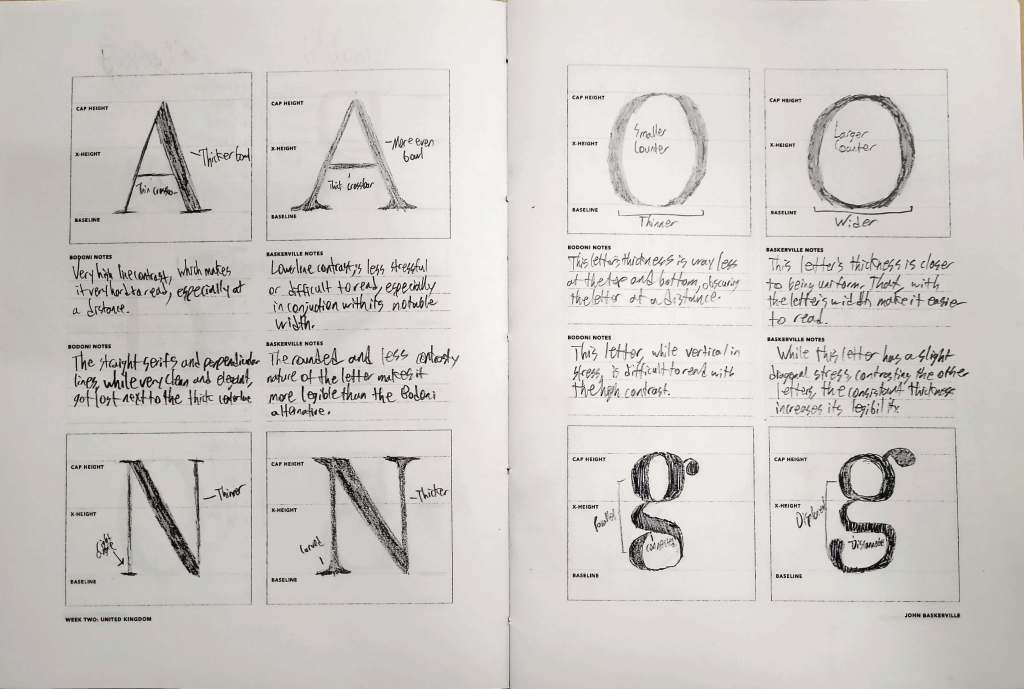 CAP HEIGHT
X-HEIGHT
BASELINE
Thicker bowl
Thin crossbar
CAP HEIGHT
X-HEIGHT
BASELINE
More even
bowl
Thick crossbar
BODONI NOTES
Very high line contrast, which makes
it very hard to read, especially at
a distance.
BASKERVILLE NOTES
Lower line contrast, is less stressful
or difficult to read, especially
in conjuction with its notable
width.
BODONI NOTES
The straight serifs and perpendicular
lines, while very clean and elegant,
got lost next to the thick
BASKERVILLE NOTES
The rounded and less contrasty
nature of the letter makes it
more legible than the Bodoni
alternative.
CAP HEIGHT
X-HEIGHT
BASELINE
Thinner
Right
Angle
CAP HEIGHT
X-HEIGHT
BASELINE
Thicker
Curved
WEEK TWO: UNITED KINGDOM
CAP HEIGHT
X-HEIGHT
BASELINE
Smaller
Counter
Thinner
CAP HEIGHT
X-HEIGHT
BASELINE
Larger
Counter
Wider
BODONI NOTES
This letter's thickness is way less
at the top and bottom, obscuring
the letter at a distance.
BASKERVILLE NOTES
This letter's thickness is closer
to being uniform. That, with
the letter's width make it easier
to read.
BODONI NOTES
This letter, while vertical in
stress, is difficult to read with
the high contrast.
BASKERVILLE NOTES
While this letter has a slight
diagonal stress, contrasting the other
letters, the consistant thickness
increases its legibility.
CAP HEIGHT
X-HEIGHT
BASELINE
Parallel
CAP HEIGHT
X-HEIGHT
BASELINE
Displaced
JOHN BASKERVILLE